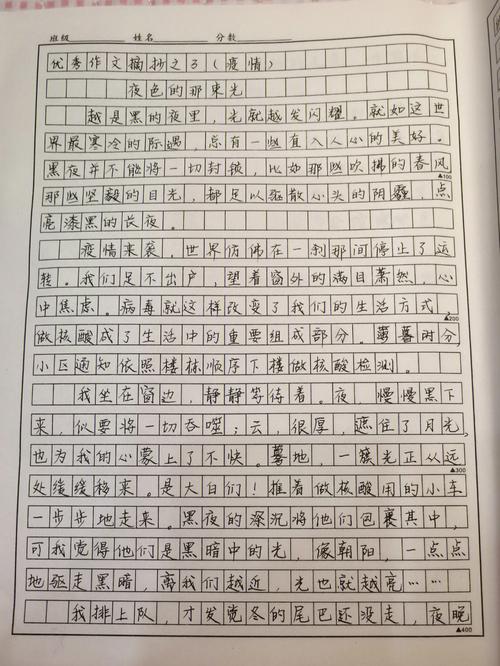 班级 姓名 分数
优秀作文摘抄之3(疫情)
夜色的那束光
越是黑的夜里,光就越发闪耀。就如这世
界最寒冷的际遇,总有一些直入人心的美好。
黑夜并不能将一切封锁,比如那些吹拂的春风
▲100
那些坚毅的目光,都足以驱散心头的阴霾,点
亮漆黑的长夜。
疫情来袭,世界仿佛在一刹那间停止了运
转。我们足不出户,望着窗外的满目萧然,心
中焦虑。病毒就这样改变了我们的生活方式,
▲200
做核酸成了生活中的重要组成部分。薄暮时分,
小区通知依照楼栋顺序下楼做核酸检测。
我坐在窗边,静静等待着。夜,慢慢黑下
来,似要将一切吞噬;云,很厚,遮住了月光,
也为我的心蒙上了不快。蓦地,一簇光正从远
▲300
处缓缓移来。是大白们!推着做核酸用的小车
一步步地走来。黑夜的深沉将他们包裹其中,
可我觉得他们是黑暗中的光,像朝阳,一点点
地驱走黑暗,离我们越近,光也就越亮……
我排上队,才发觉冬的尾巴还没走,夜晚
▲400